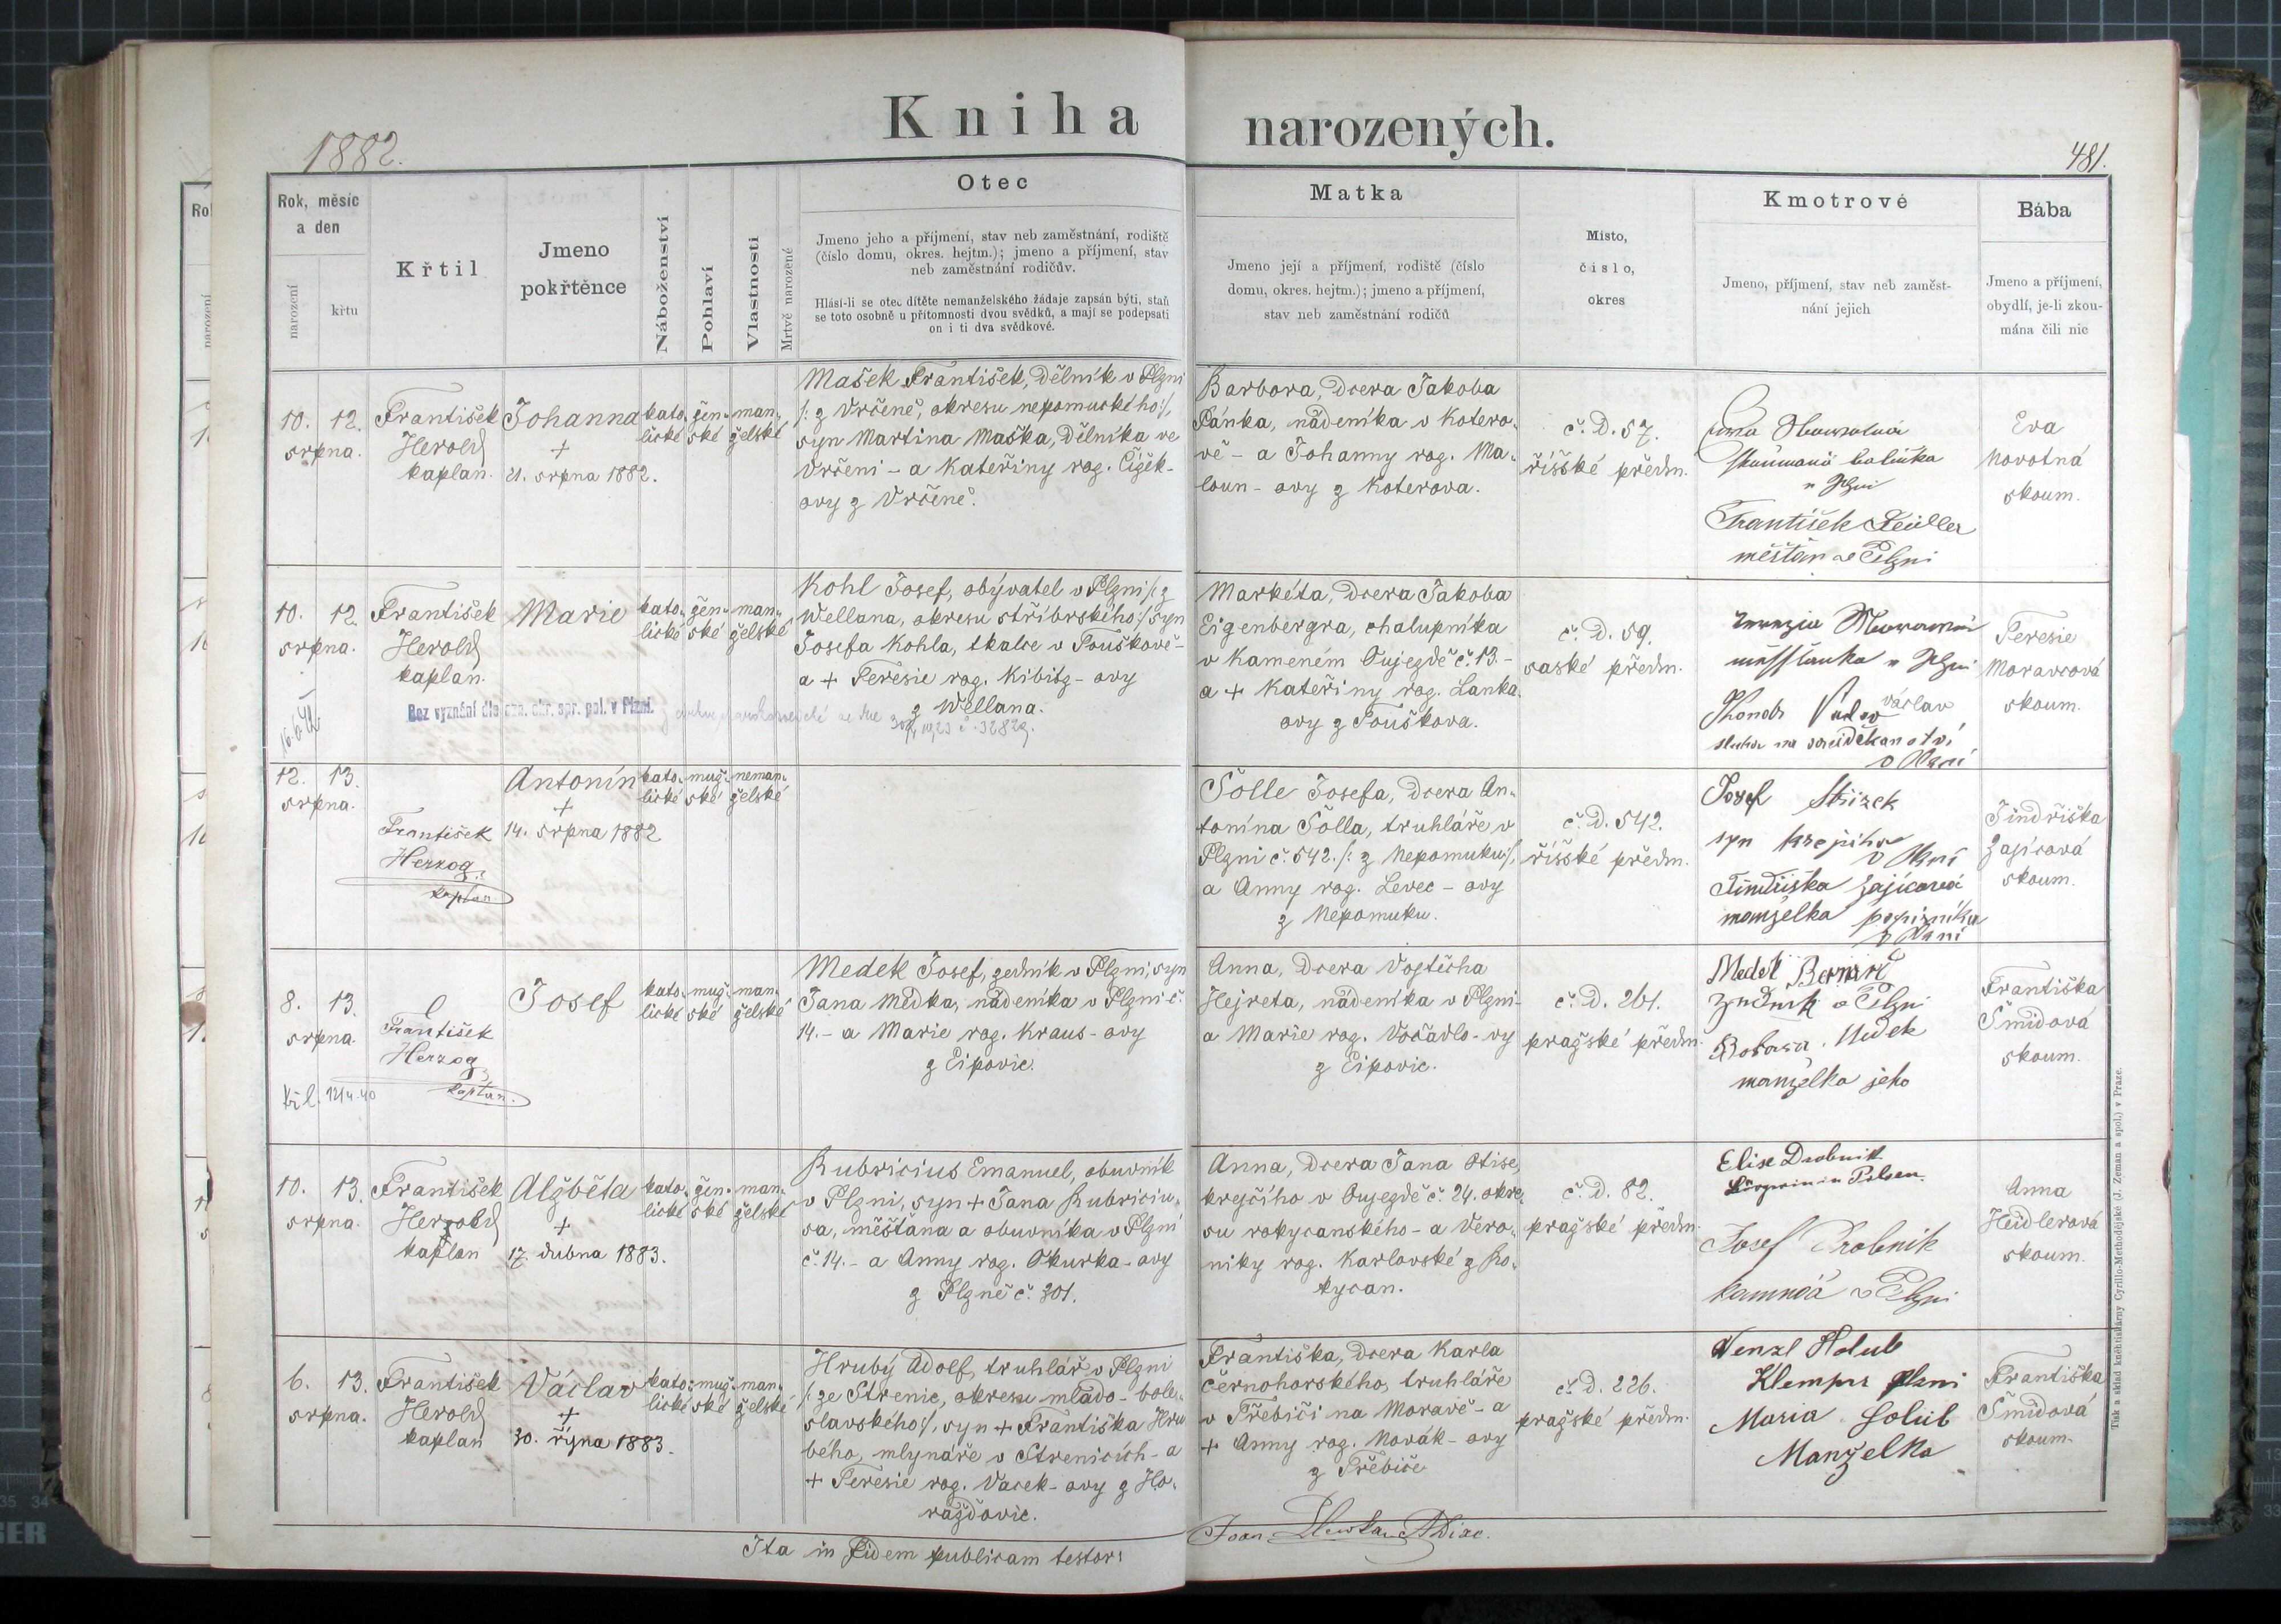 Kniha narozených.
1882.
481.
Rok, měsíc
a den
narození
křtu
Křtil
Jmeno
pokřtěnce
Náboženství
Pohlaví
Vlastnosti
Mrtvě narozené
Otec
Jmeno jeho a příjmení, stav neb zaměstnání, rodiště
(číslo domu, okres. hejtm.); jmeno a příjmení, stav
neb zaměstnání rodičův.
Hlásí-li se otec dítěte nemanželského žádaje zapsán býti, staň
se toto osobně u přítomnosti dvou svědků, a mají se podepsati
on i ti dva svědkové.
Matka
Jmeno její a příjmení, rodiště (číslo
domu, okres. hejtm.); jmeno a příjmení,
stav neb zaměstnání rodičů
Místo,
číslo,
okres
Kmotrové
Jmeno, příjmení, stav neb zaměst-
nání jejich
Bába
Jmeno a příjmení,
obydlí, je-li zkou-
mána čili nic
10. 12.
srpna.
František
Herold
kaplan.
Johanna
+
21. srpna 1882.
kato-
lické
žen-
ské
man-
želské
Mašek František, dělník v Plzni
/: z Vrčeně, okresu nepomuckého:/,
syn Martina Maška, dělníka ve
Vrčeni - a Kateřiny roz. Čížek-
ovy z Vrčeně.
Barbora, dcera Jakoba
Pánka, nádeníka v Kotero-
vě - a Johanny roz. Ma-
loun - ovy z Koterova.
č. D. 57.
říšské předm.
v Plzni
František
měšťan v Plzni
Eva
Novotná
skoum.
10. 12.
srpna.
František
Herold
kaplan.
Marie
kato-
lické
žen-
ské
man-
želské
Kohl Josef, obývatel v Plzni /: z
Wellana, okresu stříbrského:/ syn
Josefa Kohla, tkalce v Touškově -
a + Teresie roz. Kibitz - ovy
z Wellana.
Bez vyznání dle ozn. okr. spr. pol. v Plzni.
Markéta, dcera Jakoba
Eigenbergra, chalupníka
v Kameném Oujezdě č. 13. -
a + Kateřiny roz. Lanka-
ovy z Touškova.
č. D. 59.
saské předm.
Václav
v Plzni
Teresie
Moravcová
skoum.
12. 13.
srpna.
František
Herzog,
kaplan
Antonín
+
14. srpna 1882
kato-
lické
muž-
ské
neman-
želské
Šolle Josefa, dcera An-
tonína Šolla, truhláře v
Plzni č. 542. /: z Nepomuku:/,
a Anny roz. Levec - ovy
z Nepomuku.
č. D. 542.
říšské předm.
Josef Střizek
syn krejčího
v Plzni
Jindřiška Zajícová
manželka
v Plzni
Jindřiška
Zajícová
skoum.
8. 13.
srpna.
František
Herzog,
kaplan.
Josef
kato-
lické
muž-
ské
man-
želské
Medek Josef, zedník v Plzni, syn
Jana Medka, nádeníka v Plzni č.
14. - a Marie roz. Kraus - ovy
z Eipovic.
Anna, dcera Vojtěcha
Hejreta, nádeníka v Plzni -
a Marie roz. Vočadlo - vy
z Eipovic.
č. D. 261.
pražské předm.
Medek
Zedník v Plzni
Medek
manželka jeho
Františka
Šmídová
skoum.
10. 13.
srpna.
František
Herold
kaplan
Alžběta
+
17. dubna 1883.
kato-
lické
žen-
ské
man-
želské
Rubricius Emanuel, obuvník
v Plzni, syn + Jana Rubriciu-
sa, měšťana a obuvníka v Plzni
č. 14. - a Anny roz. Okurka - ovy
z Plzně č. 301.
Anna, dcera Jana Otise,
krejčího v Oujezdě č. 24. okre-
su rokycanského - a Vero-
niky roz. Karlovské z Ro-
kycan.
č. D. 82.
pražské předm.
Elise Drobnik
in Pilsen.
Josef Drobnik
v Plzni
Anna
Heidlerová
skoum.
6. 13.
srpna.
František
Herold
kaplan
Václav
+
30. října 1883.
kato-
lické
muž-
ské
man-
želské
Hrubý Adolf, truhlář v Plzni
/: ze Strenic, okresu mlado - bole-
slavského:/, syn + Františka Hru
bého, mlynáře v Strenicích - a
+ Teresie roz. Vacek - ovy z Ho-
ražďovic.
Františka, dcera Karla
Černohorského, truhláře
v Třebíči na Moravě - a
+ Anny roz. Novák - ovy
z Třebíče
č. D. 226.
pražské předm.
Wenzl Holub
Klempner Plzni
Maria Holub
Manzelka
Františka
Šmídová
skoum.
Ita in fidem publicam testor:
Tisk a sklad kněhtiskárny Cyrillo-Methodějské (J. Zeman a spol.) v Praze.